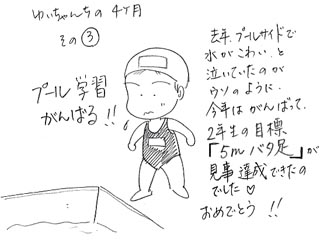 ゆいちゃんちの 4ケ月
その③
プール学習
がんばる!!
去年、プールサイドで
水がこわい、と
泣いていたのが
ウソのように…
今年は がんばって、
2年生の目標
「5mバタ足」が
見事達成できたの
でした♡
おめでとう!!